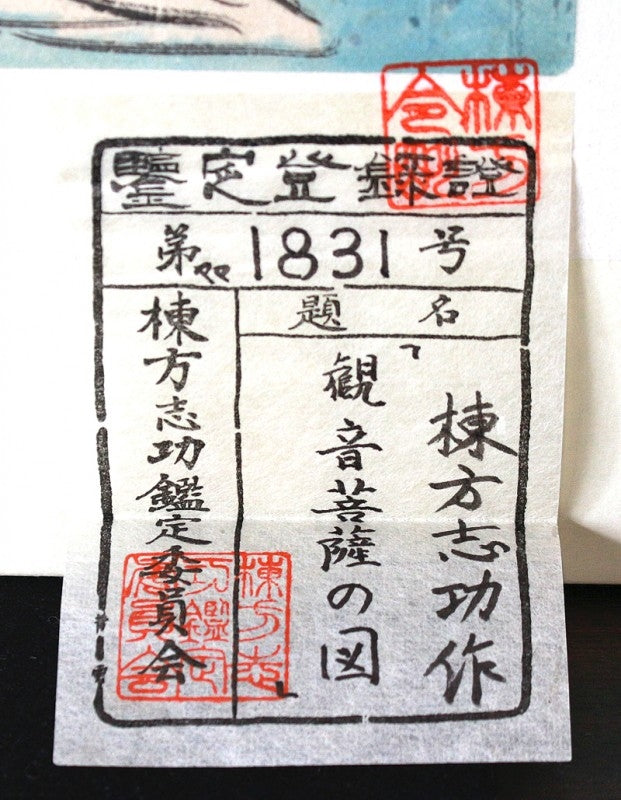 鑑定登録證
第㋮1831号
題名
棟方志功作
「観音菩薩の図」
棟方志功鑑定委員会
棟方志功鑑定委員会